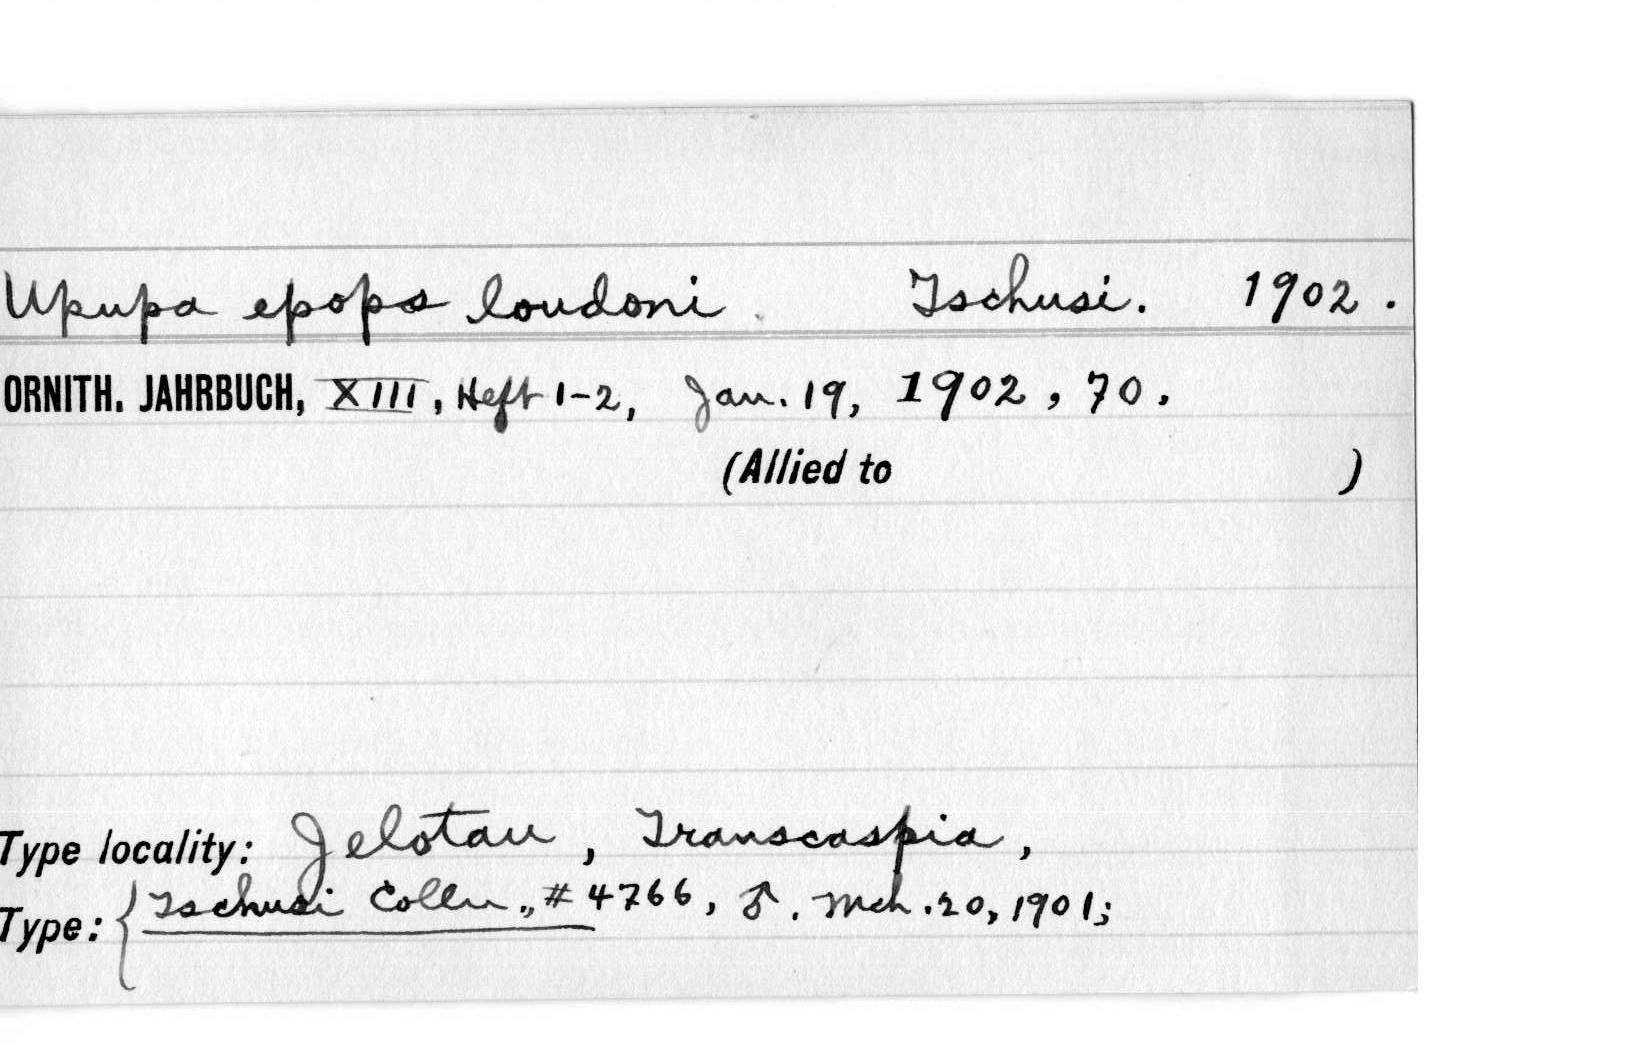 Upupa epops loudoni Tschusi. 1902.
ORNITH. JAHRBUCH, XIII, Heft 1-2, Jan. 19, 1902, 70.
(Allied to )
Type locality: Jelotau, Transcaspia,
Type: { Tschusi Colln., # 4766, ♂. Mch. 20, 1901;